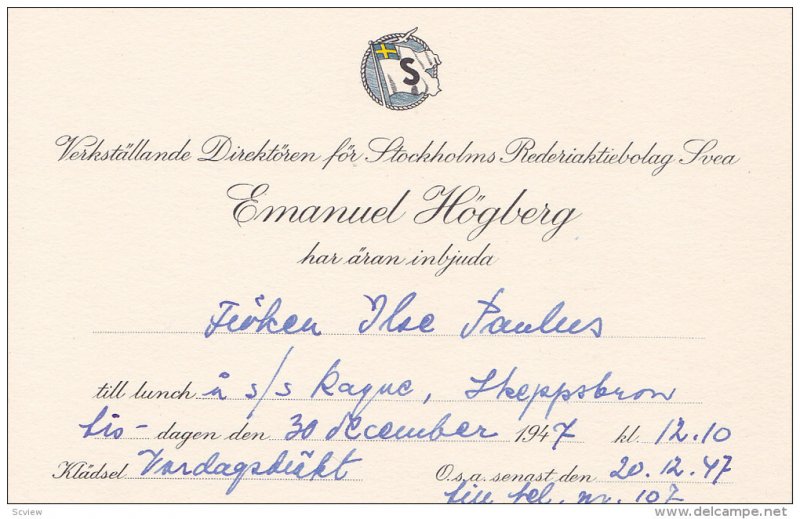 S
Verkställande Direktören för Stockholms Rederiaktiebolag Svea
Emanuel Högberg
har äran inbjuda
Fröken Ilse Paulus
till lunch å s/s Ragne, Skeppsbron
tis-dagen den 30 december 1947 kl. 12.10
Klädsel Vardagsdräkt O.s.a. senast den 20.12.47
till tel. nr. 107
Scview
delcampe.net